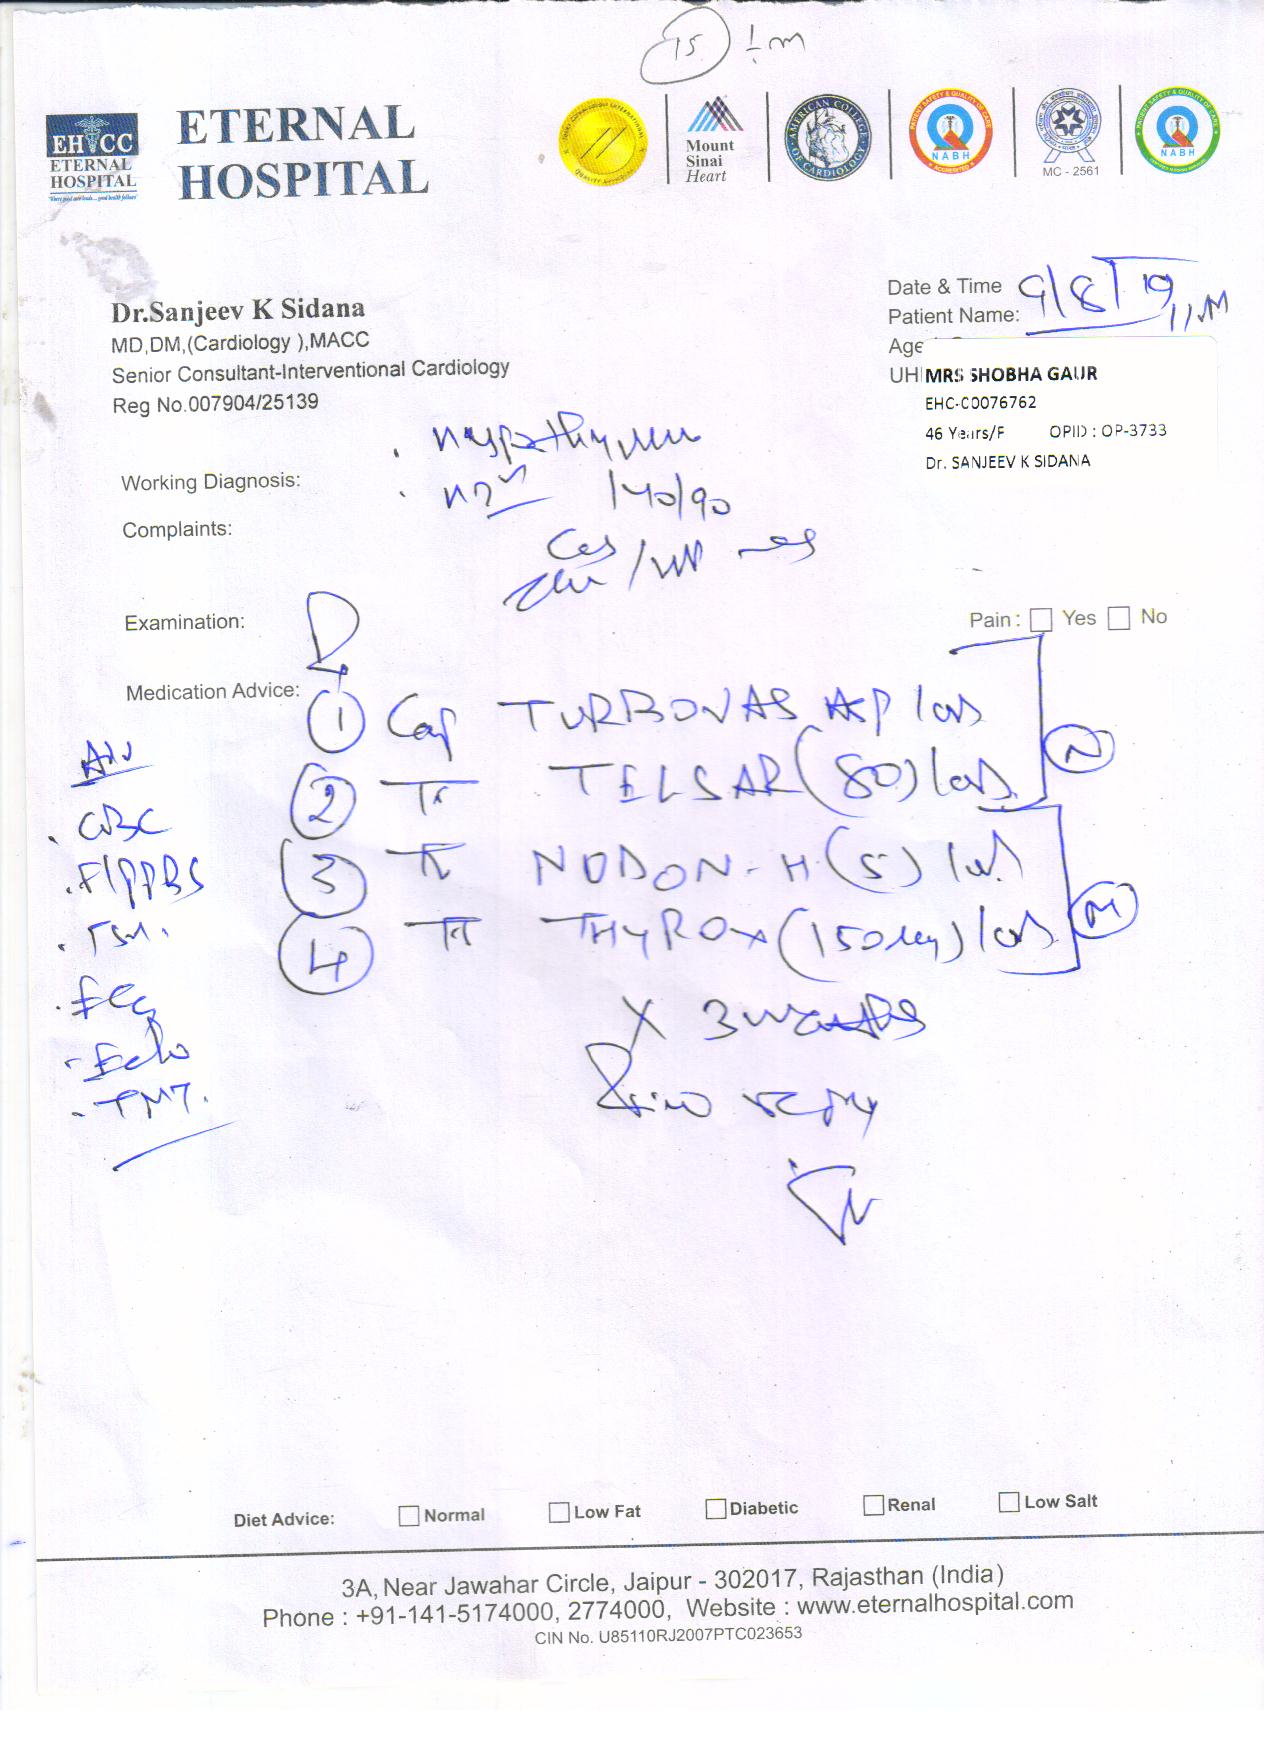 15
EHCC
ETERNAL
HOSPITAL
ETERNAL
HOSPITAL
Mount
Sinai
Heart
AMERICAN COLLEGE
OF CARDIOLOGY
PATIENT SAFETY & QUALITY OF CARE
NABH
ACCREDITED
MC - 2561
NABH
Dr.Sanjeev K Sidana
MD,DM,(Cardiology ),MACC
Senior Consultant-Interventional Cardiology
Reg No.007904/25139
Date & Time 9/8/19
Patient Name:
Age
UH
MRS SHOBHA GAUR
EHC-C0076762
46 Years/F OPID : OP-3733
Dr. SANJEEV K SIDANA
Working Diagnosis:
140/90
Complaints:
Examination:
Pain : Yes No
Medication Advice:
1 Cap TURBOVAS ASP 1 OD
2 TELSAR (80) 1 OD
N
3 NODON-H (5) 1 OD
4 THYROX (150mcg) 1 OD
M
X 3 months
CBC
F/PPBS
TSH
ECG
Echo
TMT
Diet Advice: Normal Low Fat Diabetic Renal Low Salt
3A, Near Jawahar Circle, Jaipur - 302017, Rajasthan (India)
Phone : +91-141-5174000, 2774000, Website : www.eternalhospital.com
CIN No. U85110RJ2007PTC023653